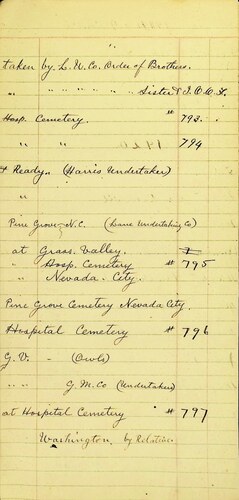 "
taken by L. U. Co. Order of Brothers.
" " " " " Sisters I.O.O.F.
Hosp. Cemetery. # 793.
" " 794
& Ready. (Harris Undertaker)
"
Pine Grove N.C. (Loane Undertaking Co)
at Grass Valley.
" Hosp. Cemetery # 795
" Nevada. City.
Pine Grove Cemetery Nevada City.
Hospital Cemetery # 796
G.V. - (Owls)
" " G.M.Co (Undertaker)
at Hospital Cemetery # 797
Washington, by Relatives